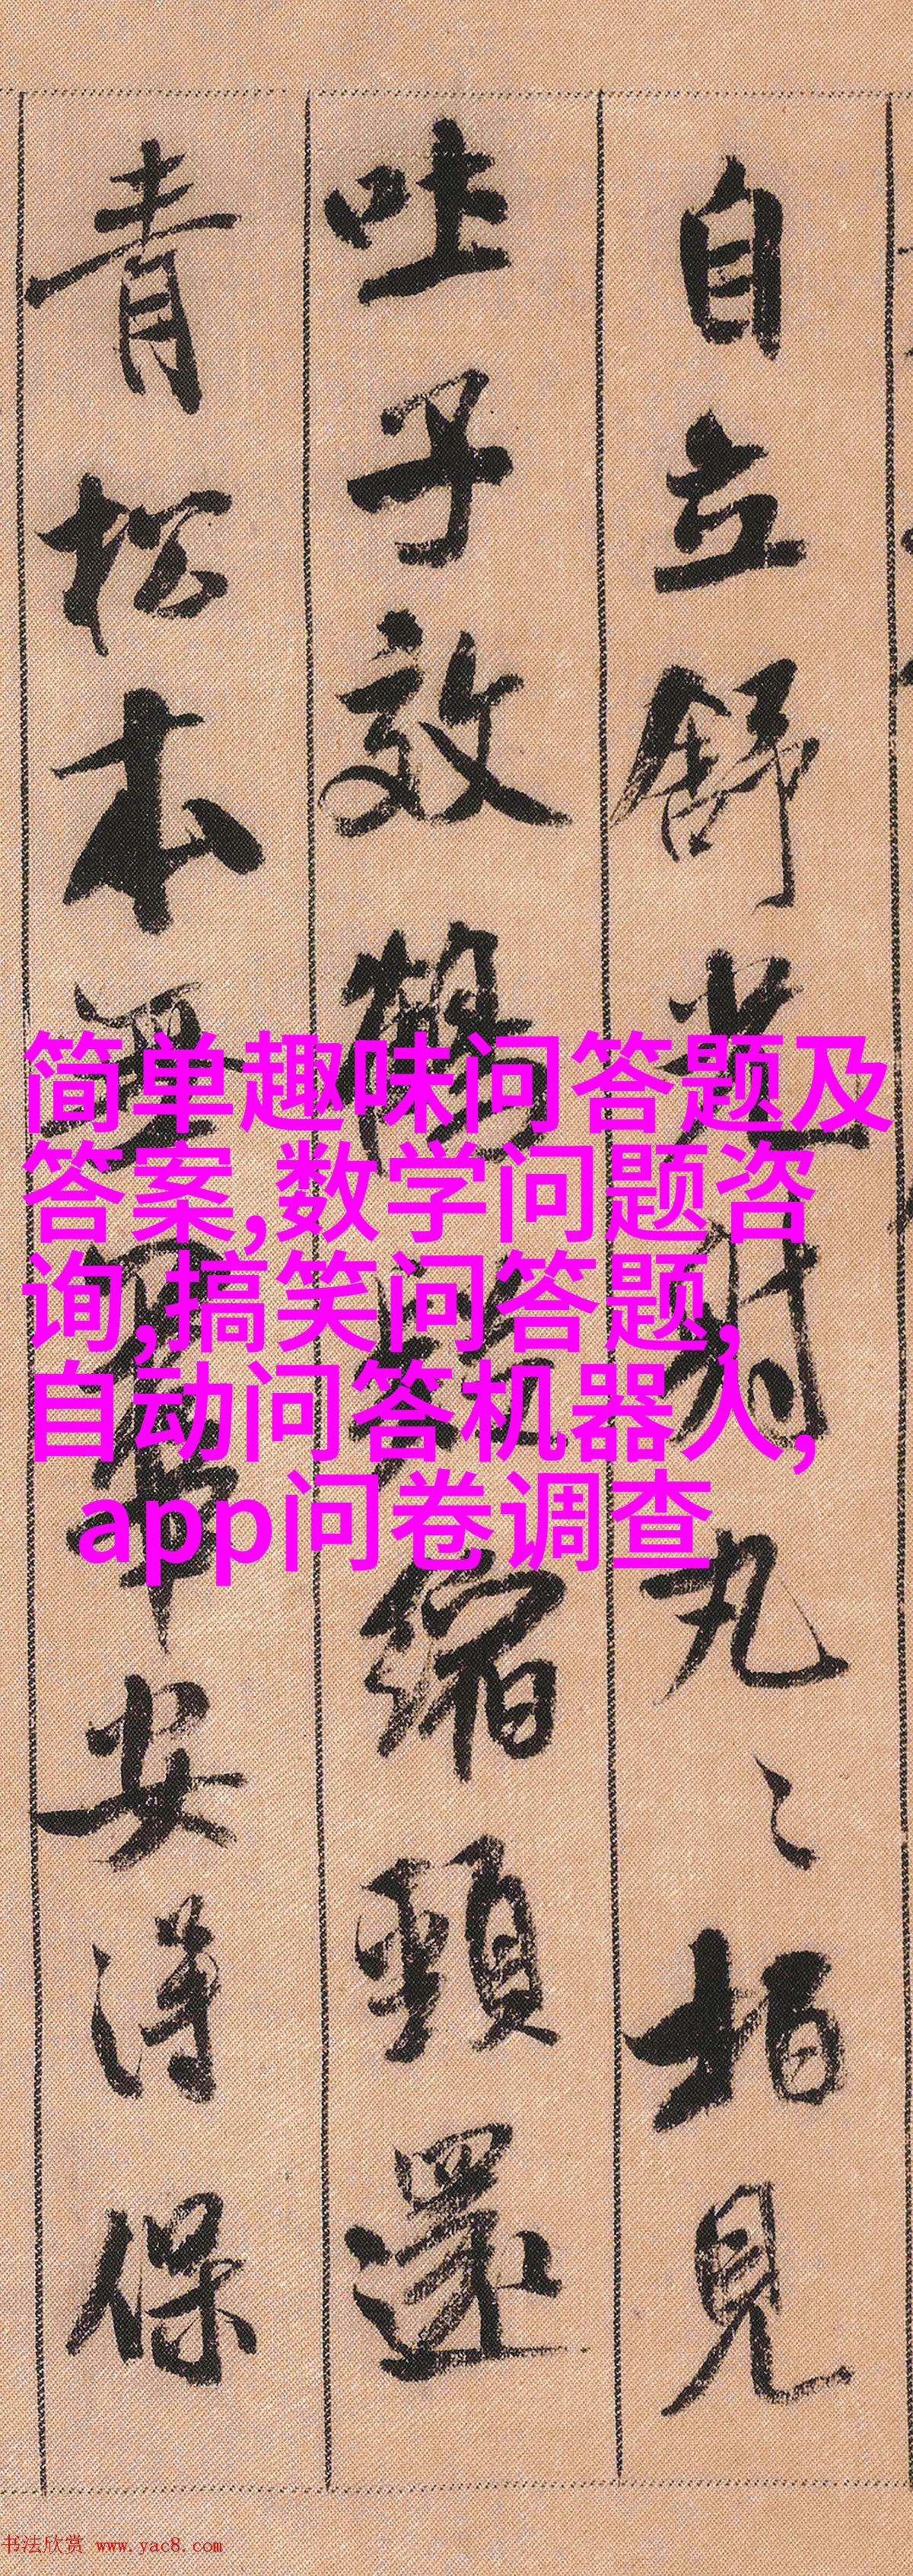 自立舒光射丸〻柏見
吐子效鶴疑縮頸還
青松本無華安得保
简单趣味问答题及
答案,数学问题咨
询,搞笑问答题,
自动问答机器人,
app问卷调查
书法欣赏 www.yac8.com